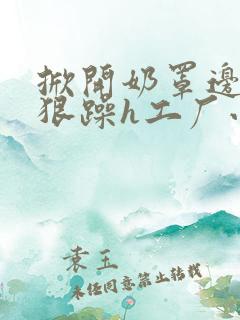 掀开奶罩邊
狠躁h工厂
袁玉
未经同意禁止转载